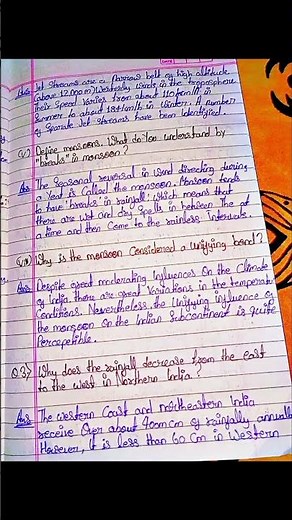 Ans:- Jet Streams are a Narrow belt of high altitude
(above 12,000 m) Westerly Winds in the troposphere
Their Speed Varies from about 110 km/h in
Summer to about 184 km/h in Winters. A number
of Separate Jet Streams have been Identified.
Define monsoons. What do you understand by
"breaks" in monsoon?
Ans The Seasonal reversal in Wind direction during
a Year is Called the monsoon. Monsoon tends
to have 'breaks' in rainfall; which means that
there are wet and dry Spells in between The
a time and then Come to the rainless Intervals.
Why is the monsoon Considered a Unifying bond?
Ans:- Despite great moderating Influences On the Climate
of India, there are great Variations in the temperature
Conditions. Nevertheless, the Unifying influence of
the monsoon On the Indian Subcontinent is quite
Perceptible.
Q.3) Why does the rainfall decrease from the east
to the west in Northern India?
Ans: The western Coast and northeastern India
receive Over about 400 cm of rainfally annually
However, It is less than 60 Cm in Western